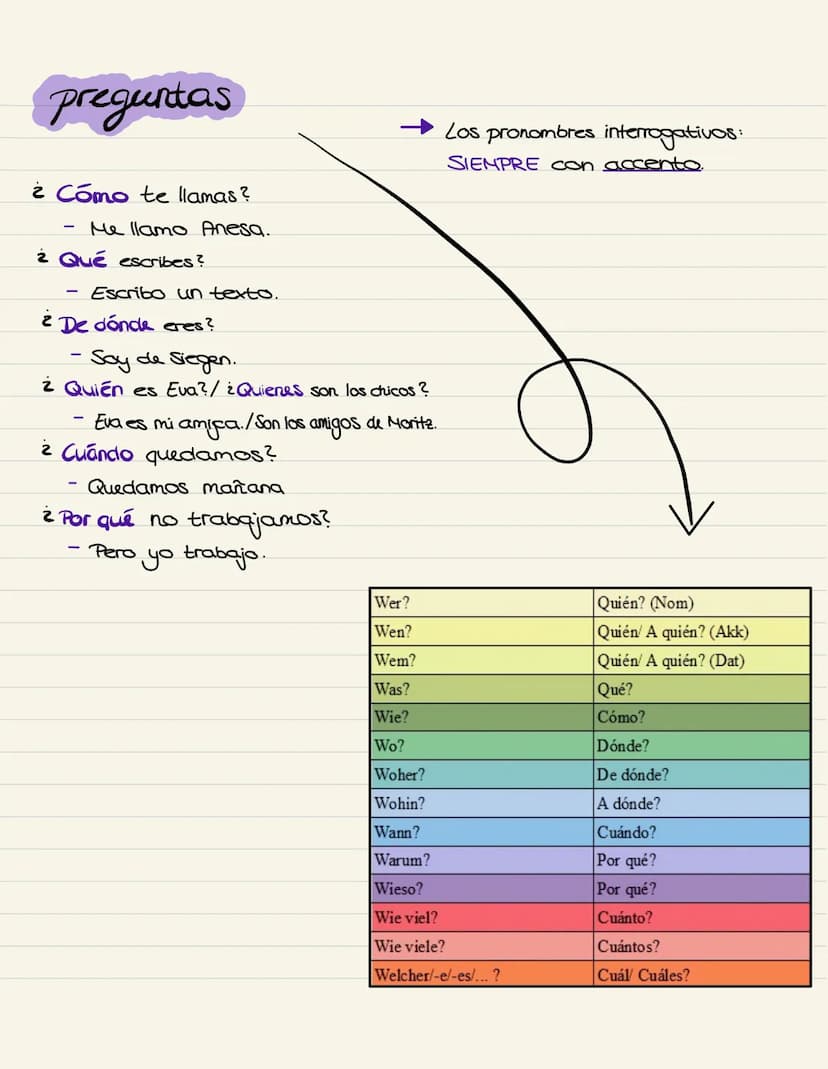 preguntas
→ Los pronombres interrogativos:
SIEMPRE con accento.
¿ Cómo te llamas?
- Me llamo Anesa.
¿ Qué escribes?
- Escribo un texto.
¿ De dónde eres?
- Soy de Siegen.
¿ Quién es Eva?/ ¿Quienes son los chicos?
- Eva es mi amiga./Son los amigos de Moritz.
¿ Cuándo quedamos?
- Quedamos mañana
¿ Por qué no trabajamos?
- Pero yo trabajo.
Wer? Quién? (Nom)
Wen? Quién/ A quién? (Akk)
Wem? Quién/ A quién? (Dat)
Was? Qué?
Wie? Cómo?
Wo? Dónde?
Woher? De dónde?
Wohin? A dónde?
Wann? Cuándo?
Warum? Por qué?
Wieso? Por qué?
Wie viel? Cuánto?
Wie viele? Cuántos?
Welcher/-e/-es/... ? Cuál/ Cuáles?